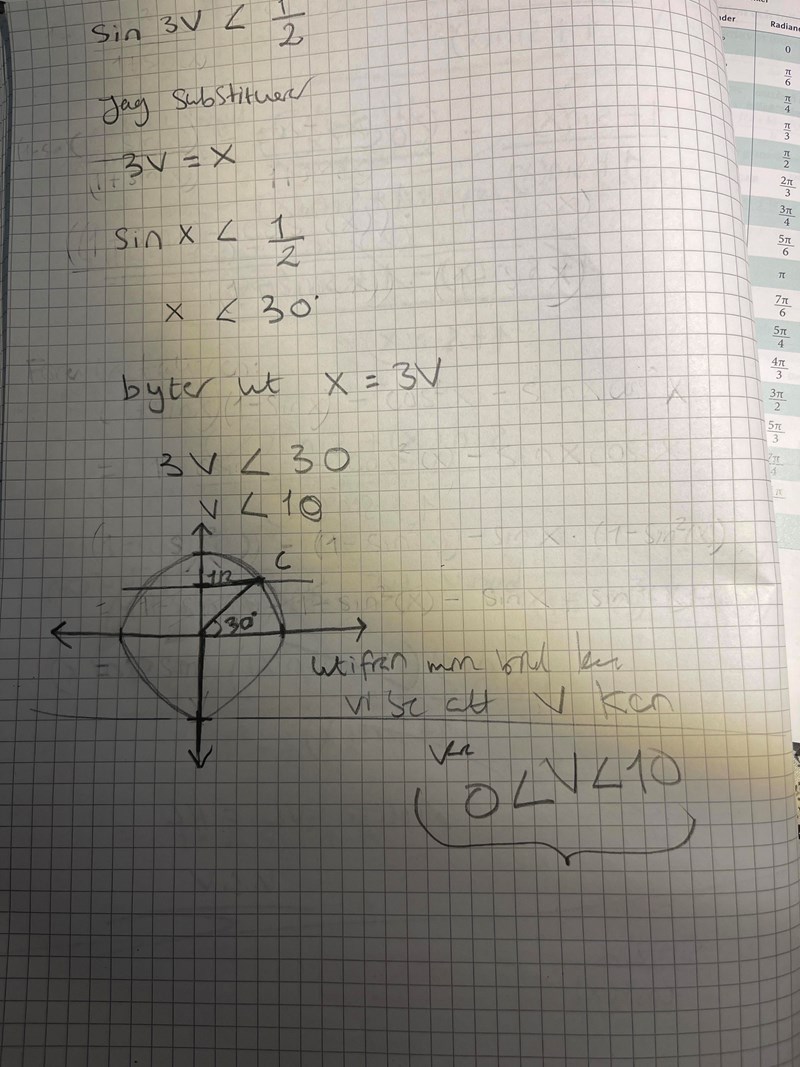 sin 3v < 1/2
Jag substituerar
3v = x
sin x < 1/2
x < 30°
byter ut x = 3v
3v < 30
v < 10
1/2 C
30°
utifrån min bild kan
vi se att v kan
0 < v < 10
Radian
0
π/6
π/4
π/3
π/2
2π/3
3π/4
5π/6
π
7π/6
5π/4
4π/3
3π/2
5π/3